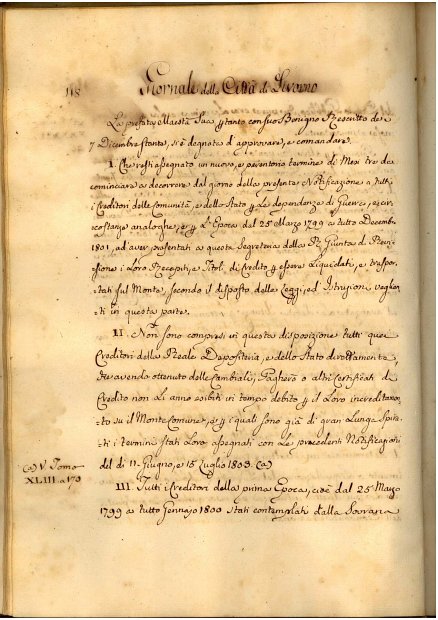 118
Giornale della Città di Livorno
La prefata Maestà Sua pertanto con suo Benigno Rescritto de
7 Dicembre stante, si è degnata d'approvare, e comandare.
I. Che resti assegnato un nuovo, e perentorio termine di Mesi tre da
cominciare a decorrere dal giorno della presente Notificazione a tutti
i Creditori delle Comunità, e dello Stato per Le dependenze di Guerra, e circo
stanze analoghe, e per L'Epoca del 25 Marzo 1799 a tutto Decembre
1801, ad aver presentati a questa Segreteria della R. Giunta di Revi-
sione i Loro Recapiti, e Titoli di Credito per essere Liquidati, e traspor-
tati sul Monte, secondo il disposto delle Leggi, ed Istruzioni veglian-
ti in questa parte.
II. Non sono compresi in questa disposizione tutti quei
Creditori della Reale Depositeria, e dello Stato direttamente,
che avendo ottenuto delle Cambiali, Pagherò o altri Certificati di
Credito non Li anno esibiti in tempo debito per il Loro increditamen-
to su il Monte Comune, e per i quali sono già di gran Lunga Spira-
ti i termini stati Loro assegnati con Le precedenti Notificazioni
del di 11. Giugno, e 15 Luglio 1803. (a)
(a) V. Tomo
XLIII a 179
III. Tutti i Creditori della prima Epoca, cioè dal 25 Marzo
1799 a tutto Gennajo 1800 stati contemplati dalla Sovrana